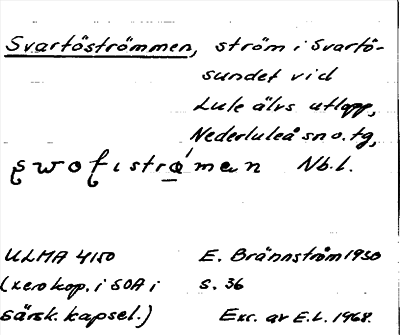 Svartöströmmen, ström i Svartö-
sundet vid
Lule älvs utlopp,
Nederluleå sn o. tg,
Nb. l.
ULMA 4150
(xerokop. i SOA i
särsk. kapsel.)
E. Brännström 1930
s. 36
Exc. av E.L. 1968.